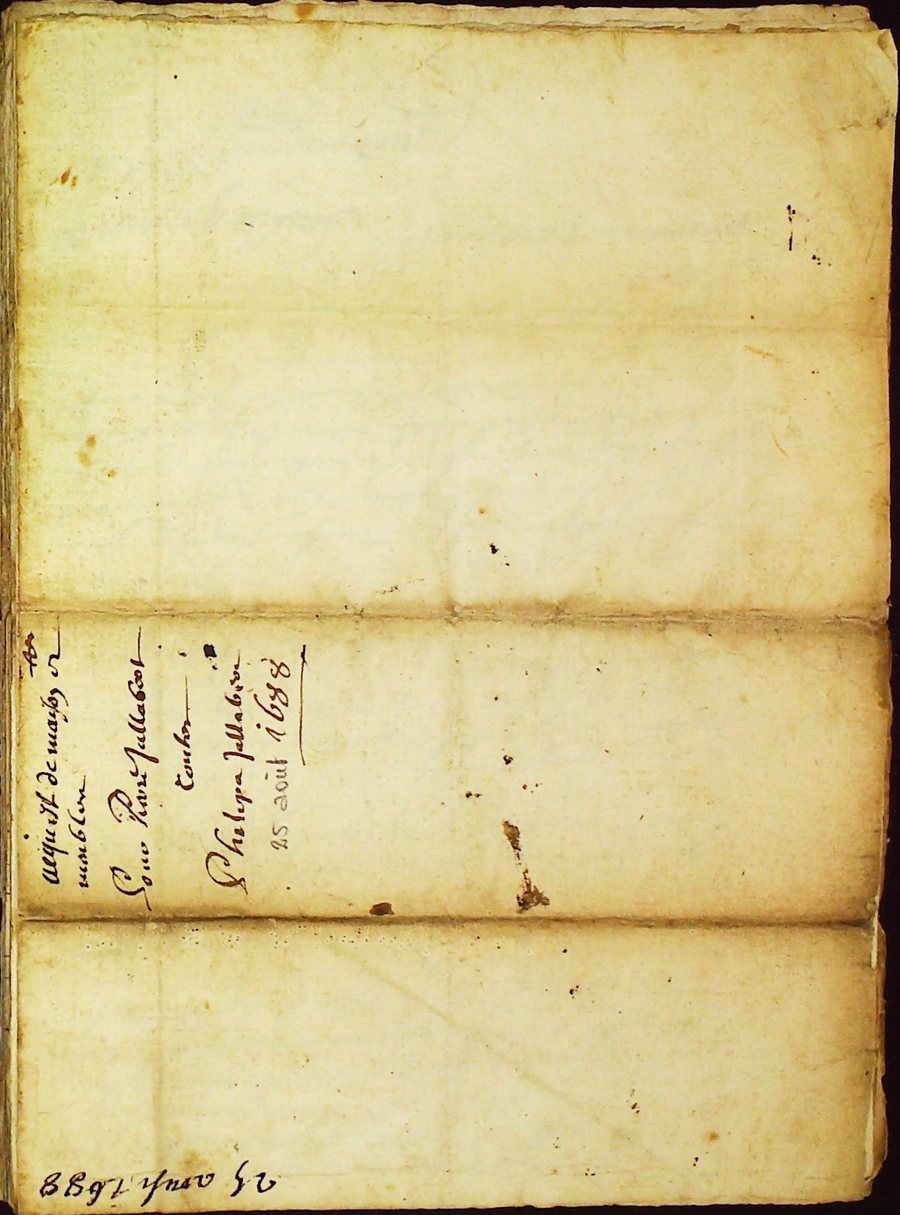 acquist de maison et
meubles
Pour Pierre Jallabert
Contre
Phelipe Jallabert
25 août 1688
25 aoust 1688